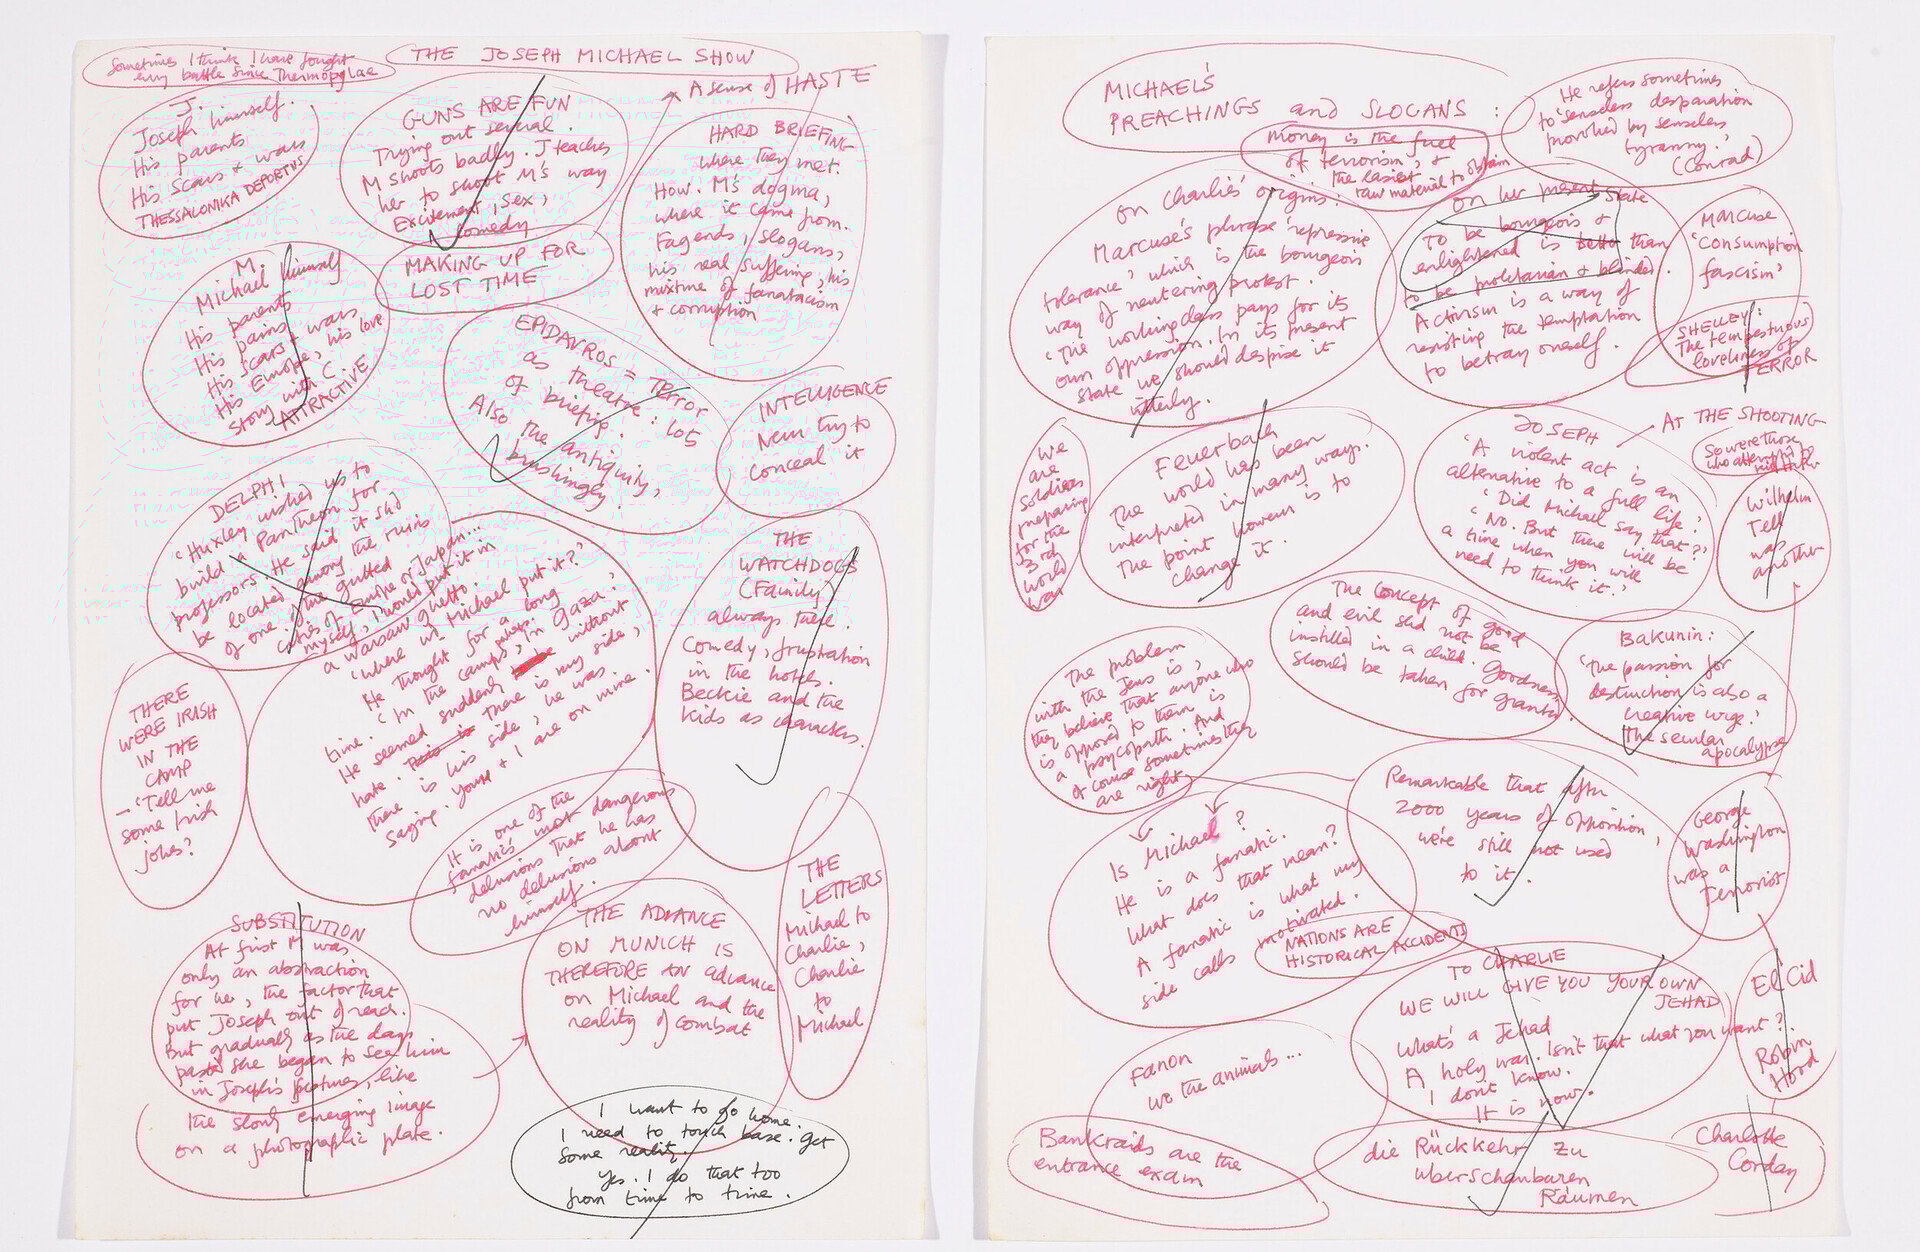 Sometimes I think I have fought
every battle since Thermopylae
THE JOSEPH MICHAEL SHOW
J.
Joseph himself.
His parents
His scars + wars
THESSALONIKA DEPORTNS
GUNS ARE FUN
Trying out several.
M shoots badly. J teaches
her to shoot M's way
Excitement, sex,
comedy
A sense of HASTE
HARD BRIEFING
where they met.
How. M's dogma,
where it came from.
Fagends, slogans,
his real suffering, his
mixture of fanaticism
+ corruption
M.
Michael himself
His parents
His pains
His scars + wars
His Europe, his love
story with C.
ATTRACTIVE
MAKING UP FOR
LOST TIME
EPIDAVROS = TERROR
as theatre: Los
of briefing.
Also the antiquity,
brushingly.
INTELLIGENCE
Never try to
conceal it
DELPHI
'Huxley wished us to
build a Pantheon for
professors. He said it shd
be located among the ruins
of one of the gutted
cities of Europe or Japan...
myself, I would put it in
a Warsaw ghetto.'
'Where wd Michael put it?'
He thought for a long
time. 'In the camps, perhaps. In Gaza.'
He seemed suddenly to be without
hate. This is There is my side,
there is his side, he was
saying. You + I are on mine.
THE
WATCHDOGS
(Family)
always there.
Comedy, frustration
in the hotels.
Beckie and the
kids as characters.
THERE
WERE IRISH
IN THE
CAMP
– 'Tell me
some Irish
jokes?
It is one of the
fanatic's most dangerous
delusions that he has
no delusions about
himself.
THE
LETTERS
Michael to
Charlie,
Charlie
to
Michael
SUBSTITUTION
At first M was
only an abstraction
for her, the factor that
put Joseph out of reach.
But gradually as the days
past she began to see him
in Joseph's features, like
the slowly emerging image
on a photographic plate.
THE ADVANCE
ON MUNICH IS
THEREFORE AN advance
on Michael and the
reality of combat
I want to go home.
I need to touch base. Get
some reality.
Yes. I do that too
from time to time.
MICHAEL'S
PREACHINGS and SLOGANS :
He refers sometimes
to 'senseless desparation
provoked by senseless
tyranny.'
(Conrad)
Money is the fuel
of terrorism, +
the easiest
raw material to obtain
On Charlie's origins:
Marcuse's phrase 'repressive
tolerance', which is the bourgeois
way of neutering protest.
'The working class pays for its
own oppression. In its present
state we should despise it
utterly.
On her present state
To be bourgeois +
enlightened is better than
to be proletarian + blinded.
Activism is a way of
resisting the temptation
to betray oneself.
Marcuse
'consumption
fascism'
SHELLEY:
The tempestuous
loveliness of
TERROR
We
are
soldiers
preparing
for the
3rd
world
war
Feuerbach
The world has been
interpreted in many ways.
The point however is to
change it.
JOSEPH
AT THE SHOOTING
'A violent act is an
alternative to a full life.'
'Did Michael say that?'
'No. But there will be
a time when you will
need to think it.'
So were those
who attempted to
kill Hitler
Wilhelm
Tell
was
another
The concept of good
and evil shd not be
instilled in a child. Goodness
should be taken for granted.
Bakunin:
'The passion for
destruction is also a
creative urge.'
The secular
apocalypse
The problem
with the Jews is,
they believe that anyone who
is opposed to them is
a psycopath. And
of course sometimes they
are right
Remarkable that after
2000 years of opposition,
we're still not used
to it.
Is Michael?
He is a fanatic.
What does that mean?
A fanatic is what my
side calls motivated.
NATIONS ARE
HISTORICAL ACCIDENTS
George
Washington
was a
Terrorist
TO CHARLIE
WE WILL GIVE YOU YOUR OWN
JEHAD
What's a Jehad
A holy war. Isn't that what you want?
I don't know.
It is now.
El Cid
Robin
Hood
Fanon
We the animals...
Bankraids are the
entrance exam
die Rückkehr zu
überschaubaren
Räumen
Charlotte
Corday